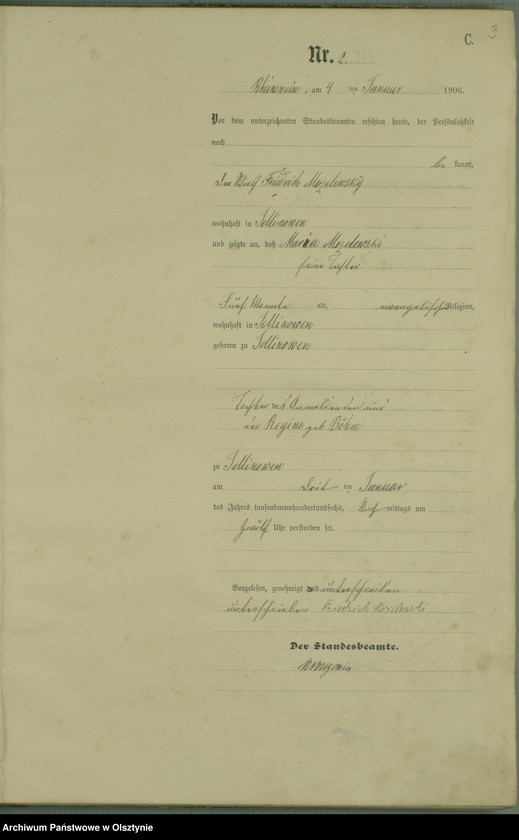 C. 3
Nr. 2.
Rheinswein, am 4 ten Januar 1906.
Vor dem unterzeichneten Standesbeamten erschien heute, der Persönlichkeit
nach
be kannt,
der Friedrich
wohnhaft in
und zeigte an, daß
seine Tochter
Fünf Monate alt, evangelischer Religion,
wohnhaft in
geboren zu
Tochter des Anmeldenden und
der Regine geb Böhm
zu
am ten Januar
des Jahres tausendneunhundertundsechs, Nach mittags um
zwölf Uhr verstorben sei.
Vorgelesen, genehmigt und unterschrieben
unterschrieben Friedrich
Der Standesbeamte.
Archiwum Państwowe w Olsztynie